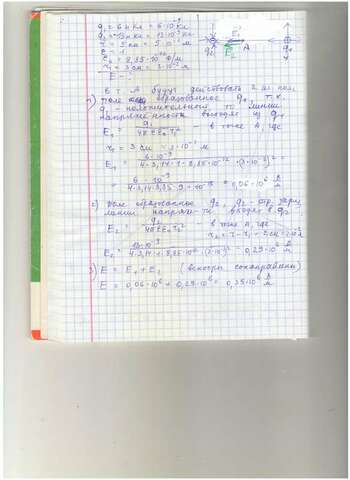 q₁ = 6 нКл = 6·10⁻⁹ Кл
q₂ = -13 нКл = 13·10⁻⁹ Кл
r = 5 см = 5·10⁻² м
E = 1
ε₀ = 8,85·10 Ф/м
r₁ = 3 см = 3·10⁻² м
E - ?
E₁
q₂ E₂ A q₁
В т. А будут действовать 2 эл. поля
1) Поле образованное q₁, т.к.
q₁ - положительный, то линии
напряженности выходят из q₁
E₁ = q₁ / 4πεε₀r₁² - в точке А, где
r₁ = 3 см = 3·10⁻² м
E₁ = 6·10⁻⁹ / 4·3,14·1·8,85·10⁻¹²·(3·10⁻²)² =
= 6·10⁻⁹ / 4·3,14·8,85·9·10 = 0,06·10⁶ В/м
2) Поле образованное q₂, q₂ - отр. заряд
линии напряж-ти входят в q₂
E₂ = q₂ / 4πεε₀r₂² в точке А, где
r₂ = r - r₁ = 2 см = 2·10⁻² м
E₂ = 13·10⁻⁹ / 4·3,14·1·8,85·10⁻¹²·(2·10⁻²)² = 0,29·10⁶ В/м
3) E = E₁ + E₂ (векторы сонаправлены)
E = 0,06·10⁶ + 0,29·10⁶ = 0,35·10⁶ В/м